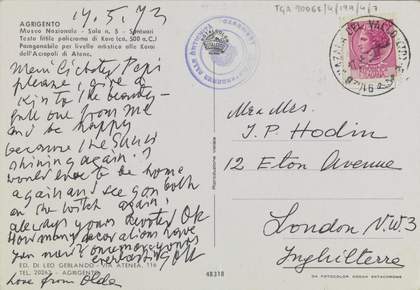 14.5.73
AGRIGENTO
Museo Nazionale - Sala n. 5 - Santuari
Testa fittile policroma di Kora (ca. 500 a.C.)
Paragonabile per livello artistico alle Korai
dell'Acropoli di Atene.
TGA 20062/4/199/4/7
Mein Pepi
please, give a
Kiss to the beauty-
full one from me
and be happy
because the Sun is
shining again. I
would love to be home
again and see you both
on the again,
always your devoted OK
How many decorations have
you now? one more yours
everlasting OK
Love from Olda
Mr & Mrs.
J.P. Hodin
12 Eton Avenue
London N.W.3
Inghilterra
Riproduzione vietata
ED. DI LEO GERLANDO - VIA ATENEA, 116
TEL. 20263 - AGRIGENTO
48318
DA FOTOCOLOR KODAK EKTACHROME